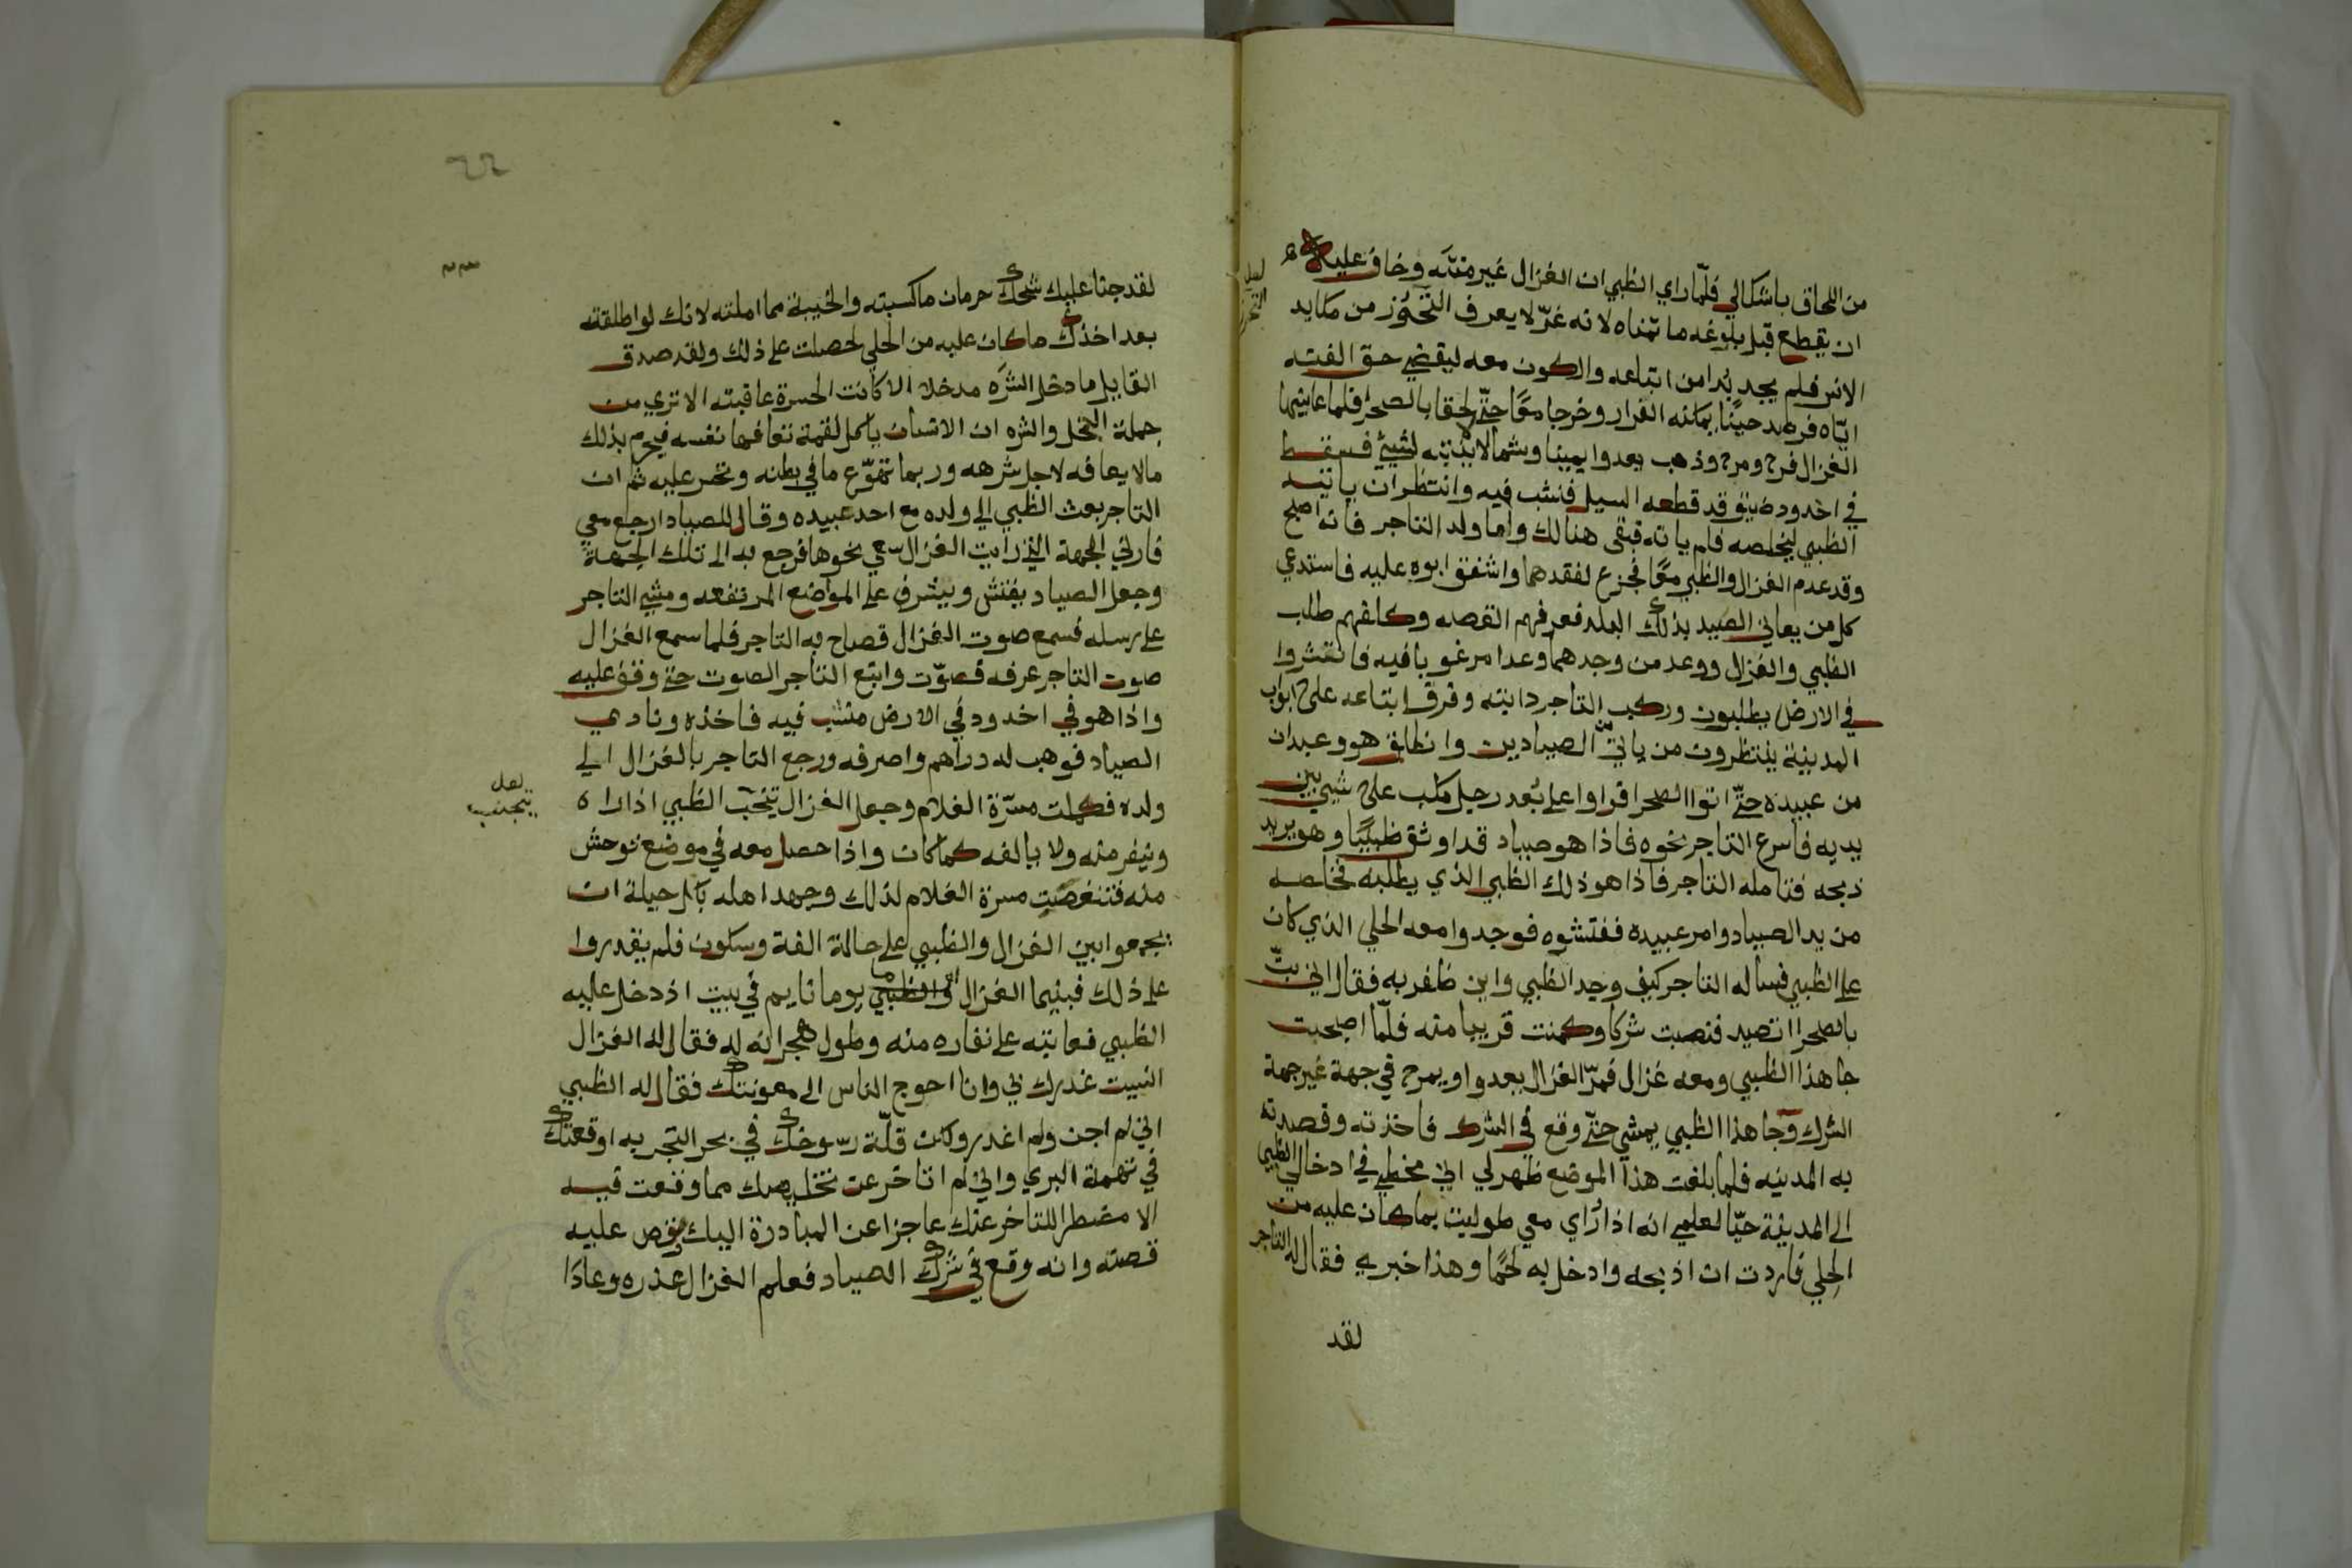 من اللحاق باشكالي فلمّا راي الظبي ان الغزال غير منته وخاف عليه
ان يقطع قبل بلوغه ما تمناه لانه غرّ لا يعرف التحوّز من مكايد
لعل التحرز
الانس فلم يجد بُدا من اتباعه والكون معه ليقضي حق الفته
ايّاه فرصد حينًا يمكنه الفرار وخرجا معًا حتّي لحقا بالصحرا فلما عاينها
الغزال فرح ومرح وذهب يعدوا يمينا وشمالا لا يثنيه شيئ فسقط
في اخدود ضيق قد قطعه السيل فنشب فيه وانتظر ان ياتيه
الظبي ليخلصه فلم ياته فبقي هنالك واما ولد التاجر فانه اصبح
وقد عدم الغزال والظبي معًا فجزع لفقدهما واشفق ابوه عليه فاستدعي
كل من يعاني الصيد بذلك البلد فعرفهم القصه وكلفهم طلب
الظبي والغزال ووعد من وجدهما وعدا مرغوبا فيه فانتشروا
في الارض يطلبون وركب التاجر دابته وفرق اتباعه علي ابواب
المدينة ينتظرون من ياتي من الصيادين وانطلق هو وعبدان
من عبيده حتّي اتوا الصحرا فراوا علي بُعد رجل مكب علي شيئ بين
يديه فاسرع التاجر نحوه فاذا هو صياد قد اوثق ظبيًا وهو يريد
ذبحه فتامله التاجر فاذا هو ذلك الظبي الذي يطلبه فخلصه
من يد الصياد وامر عبيده ففتشوه فوجدوا معه الحلي الذي كان
علي الظبي فساله التاجر كيف وجد الظبي واين ظفر به فقال اني بتّ
بالصحرا اتصيد فنصبت شركا وكمنت قريبا منه فلمّا اصبحت
جا هذا الظبي ومعه غزال فمرّ الغزال يعدوا ويمرح في جهة غير جهة
الشرك وجا هذا الظبي يمشي حتّي وقع في الشرك فاخذته وقصدته
به المدينه فلما بلغت هذا الموضع ظهر لي اني مخطي في ادخالي الظبي
الي المدينة حيّا لعلمي انه اذا رُاي معي طوليت بما كان عليه من
الحلي فاردت ان اذبحه وادخل به لحمًا وهذا خبري فقال له التاجر
لقد
٢٢
لقد جنا عليك شحك حرمان ما كسبته والخيبة مما املته لانك لو اطلقته
بعد اخذك ما كان عليه من الحلي لحصلت علي ذلك ولقد صدق
القايل ما دخل الشرَه مدخلا الا كانت الحسرة عاقبته الا تري من
جملة البخل والشره ان الانسان ياكل لقمة تعافها نفسه فيحرم بذلك
مالا يعافه لاجل شرهه وربما تهوّع ما في بطنه وخسر عليه ثم ان
التاجر بعث الظبي الي ولده مع احد عبيده وقال للصياد ارجع معي
فارني الجهة التي رايت الغزال سعي نحوها فرجع به الي تلك الجهة
وجعل الصياد يفتش ويشرف علي المواضع المرتفعه ومشي التاجر
علي رسله فسمع صوت الغزال فصاح به التاجر فلما سمع الغزال
صوت التاجر عرفه فصوّت واتبع التاجر الصوت حتي وقف عليه
واذا هو في اخدود في الارض منشب فيه فاخذه ونادي
الصياد فوهب له دراهم واصرفه ورجع التاجر بالغزال الي
ولده فكملت مسرّة الغلام وجعل الغزال يتخب الظبي اذا راه
لعل يتجنب
وينفر منه ولا يالفه كما كان واذا حصل معه في موضع توحش
منه فتنغصت مسرة الغلام لذلك وجهد اهله بكل حيلة ان
يجمعوا بين الغزال والظبي علي حالة الفة وسكون فلم يقدروا
علي ذلك فبينما الغزال والظبي يوما نايم في بيت اذ دخل عليه
الظبي فعاتبه علي نفاره منه وطول هجرانه له فقال له الغزال
انسيت غدرك بي وانا احوج الناس الي معونتك فقال له الظبي
اني لم اجن ولم اغدر ولكن قلّة رسوخك في بحر التجربه اوقعتك
في تهمة البري واني لم اتاخر عن تخليصك مما وقعت فيه
الا مضطرا للتاخر عنك عاجزا عن المبادرة اليك وقص عليه
قصته وانه وقع في شرك الصياد فعلم الغزال عذره وعادَا